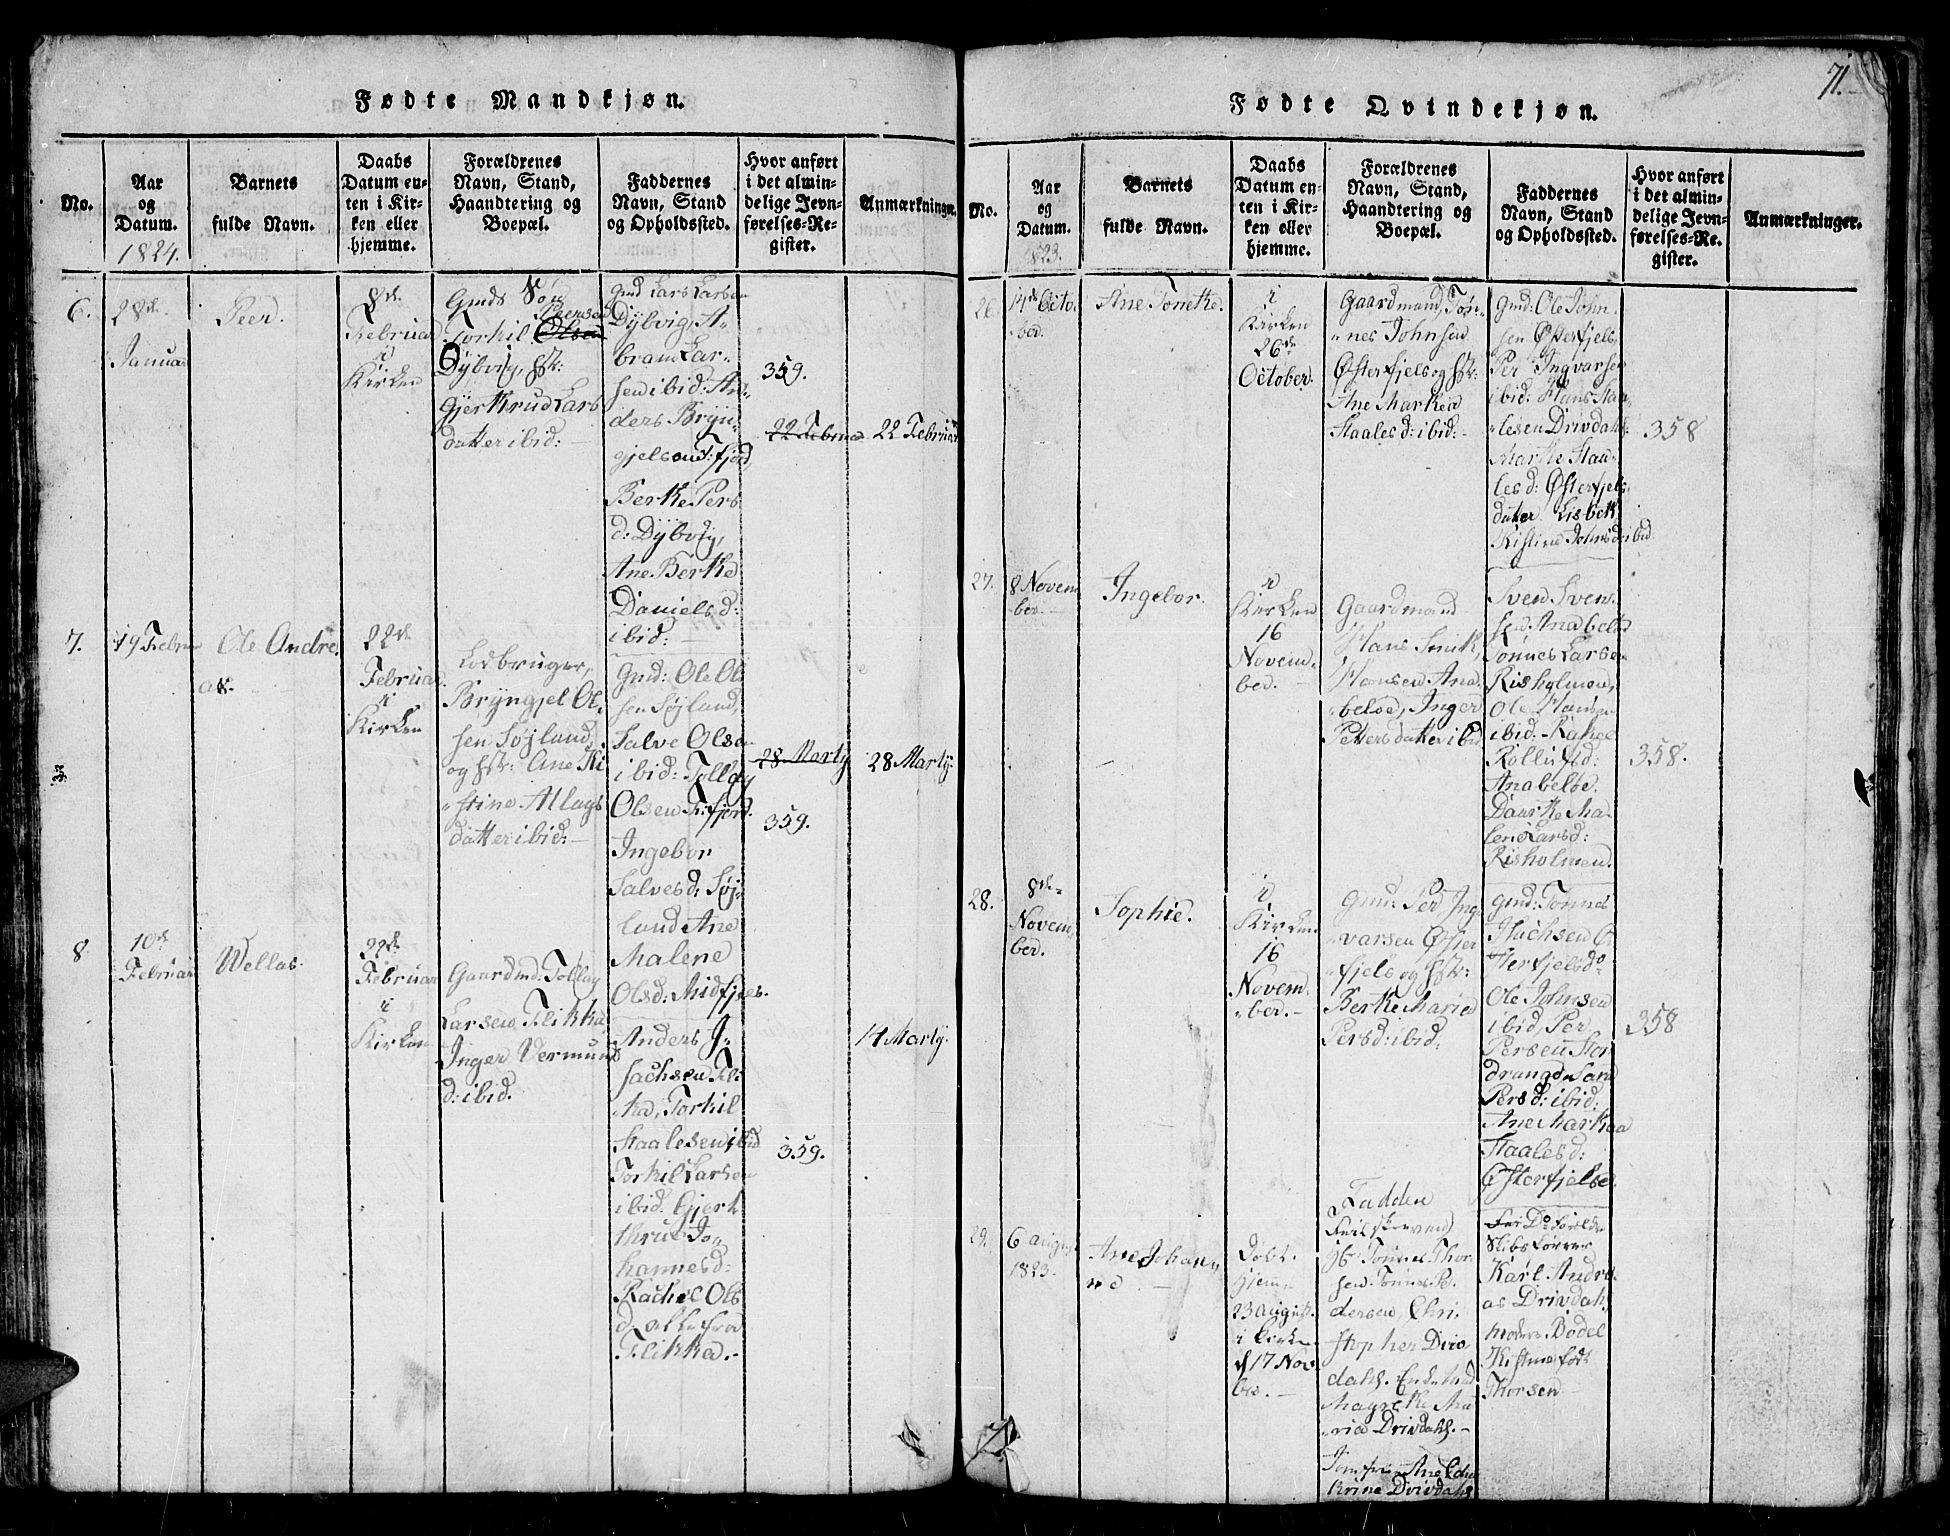 71.
Fødte Mandkjøn.
No.
Aar
og
Datum.
1824.
Barnets
fulde Navn.
Daabs
Datum en-
ten i Kir-
ken eller
hjemme.
Forældrenes
Navn, Stand,
Haandtering og
Boepæl.
Faddernes
Navn, Stand
og Opholdssted.
Hvor anført
i det almin-
delige Jevn-
førelses-Re-
gister.
Anmærkninger.
6.
28de
Januar
Peer.
8de
Februar
i
Kirken
Gmds Søn
Persen
Torkil Olsen
Dÿbvig, hstr:
Gjertrud Lars
datter ibid:
Gmd Lars Larsen
Dÿbvig, A-
bram Lar-
sen ibid: An-
ders Brÿn-
gjelsen T:fjord
Berte Pers
d: Dÿbvig,
Ane Berte
Daniels d:
ibid:
359.
22 Februar
22 Februar
7.
19 Febru
ar.
Ole Andre.
22de
Februar
i
Kirken
Lodbruger,
Brÿngjel Ol-
sen Søjland,
og hstr: Ane Ki
stine Allags
datter ibid:
Gmd: Ole Ol
sen Søjland,
Salve Olsen
ibid: Tollag
Olsen T:fjord.
Ingebor
Salvesd: Søj-
land Ane
Malene
Olsd: Midfjels.
28 Martÿ
359.
28 Martÿ.
8
10de
Februar
Wellas.
22de
Februar
i
Kirken
Gaardmd: Tollag
Larsen Flikka,
Inger Vermund
d: ibid.
Anders I-
sachsen Fli
ka, Torkil
Staalesen ibid
Torkil Larsen
ibid. Gjert
thrud Jo-
hannesd:
Rachel Ols
d: alle fra
Flikka.
359.
14 Martÿ.
Fødte Qvindekjøn.
No.
Aar
og
Datum.
1823.
Barnets
fulde Navn.
Daabs
Datum en-
ten i Kir-
ken eller
hjemme.
Forældrenes
Navn, Stand,
Haandtering og
Boepæl.
Faddernes
Navn, Stand
og Opholdssted.
Hvor anført
i det almin-
delige Jevn-
førelses-Re-
gister.
Anmærkninger.
26.
14de Octo-
ber.
Ane Tonette.
i
Kirken
26de
October.
Gaardmand, Tøn-
nes Johnsen
Østerfjels og hstr:
Ane Martea
Staales d: ibid:
Gmd: Ole John-
sen Østerfjels,
Per Ingvarsen
ibid: Hans Staa-
lesen Drivdahl:
Marthe Staa-
lesd: Østerfjels
datter Lisbet
Kistine Johnsd: ibid
358
27.
8 Novem
ber.
Ingebor.
i
Kirken
16
Novem-
ber.
Gaardmand
Hans Smit,
Hansen Ana-
beløe, Inger
Petters datter ibid
Sven Sven-
sen Anabeløe
Tønnes Larsen
Risholmen,
Ole Hansen
ibid. Rakel
Rollufsd:
Anabeløe.
Daarte Ma-
lene Larsd:
Risholmen.
358.
28.
8de
Novem-
ber.
Sophie.
i
Kirken
16
Novem-
ber.
Gmd: Per Ing-
varsen Øster
fjels og hstr:
Berte Marie
Persd: ibid:
Gmd: Tønnes
Isachsen Ø-
sterfjels do
Ole Johnsen
ibid. Per
Persen Stor
drange Sara
Pers d: ibid:
Ane Martha
Staales d:
Østerfjels.
358
29.
6 august
1823.
Ane Johan-
ne
Døbt.
hjem
23 august.
i Kirken
d 17 Nov
ber.
Faddere
Feil skrevne
Tønnes Thor
sen Tønnes Pe-
dersen, Chri-
stopher Driv
dahl. Enke Mad
Magrete Ma
ria Drivdahl.
Jomfru Ane Cha
trine Drivdahl
Skibsfører
Karl Andre
as Drivdahl,
moder Bodel
Kistine født
Thorsen